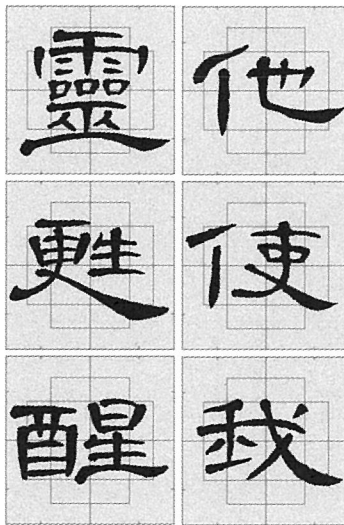 他使我
靈甦醒